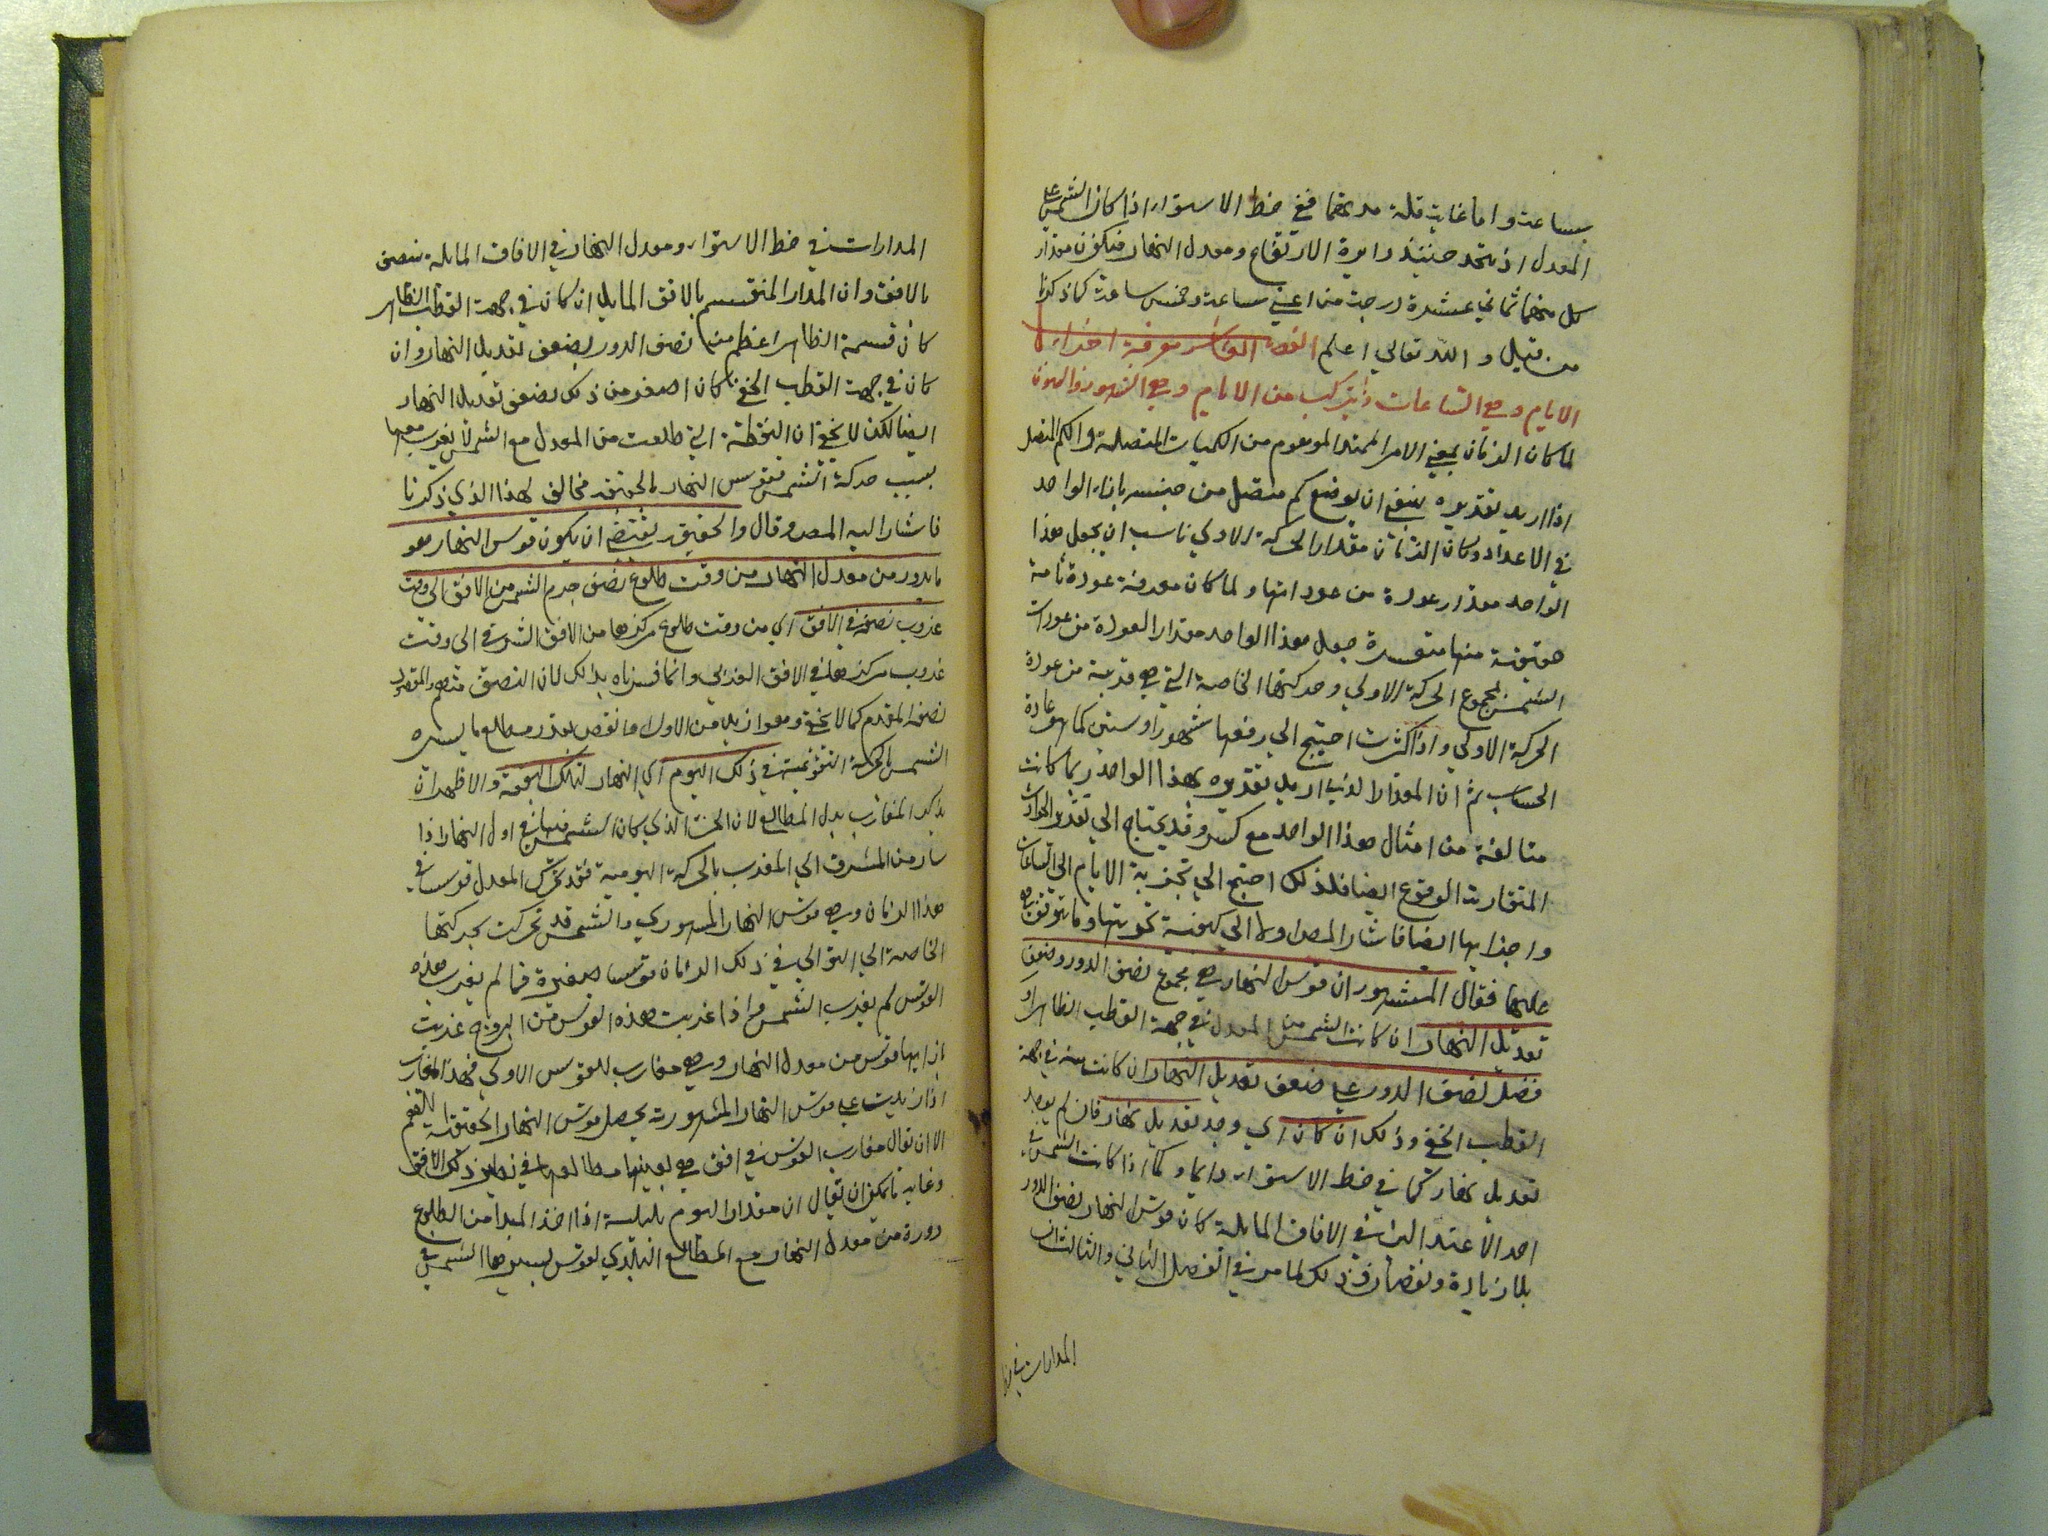 بساعة واما غاية قلة مدتهما ففي خط الاستواء اذا كان الشمس على
المعدل اذ يتحد حينئذ دايرة الارتفاع ومعدل النهار فيكون مقدار
كل منهما ثماني عشرة درجة من اعني ساعة وخمس ساعة كما ذكرنا
من قبل والله تعالى اعلم الفصل العاشر معرفة اجزاء
الايام وهي الساعات وما يتركب من الايام وهي الشهور والسنون
لما كان الزمان بمعنى الامر الممتد الموهوم من الكميات المتصلة والكم المتصل
اذا اريد تقديره ينبغي ان يوضع كم متصل من جنسه بازاء الواحد
في الاعداد وكان الزمان مقدار الحركة الاولى ناسب ان يجعل هذا
الواحد مقدار عودة من عوداتها ولما كان معرفة عودة تامة
حقيقية منها متعسرة جعل هذا الواحد مقدار العودة من عودات
الشمس بمجموع الحركة الاولى وحركتها الخاصة التي هي قريبة من عودة
الحركة الاولى واذا كثرت احتيج الى رفعها شهورا وسنين كما هو عادة
الحساب ثم ان المقدار الذي اريد تقديره بهذا الواحد ربما كانت
متالفة من امثال هذا الواحد مع كسر وقد يحتاج الى تقدير الحوادث
المتقاربة الوقوع ايضا فلذلك احتيج الى تجزية الايام الى الساعات
واجزايها ايضا فاشار المص اولا الى كيفية تحويتها وما يتوقف
عليها فقال المشهور ان قوس النهار هي مجموع نصف الدور وضعف
تعديل النهار ان كانت الشمس من المعدل في جهة القطب الظاهر او
فضل نصف الدور على ضعف تعديل النهار ان كانت منه في جهة
القطب الخفي وذلك ان كان اي وجد تعديل نهار فان لم يوجد
تعديل نهار كما في خط الاستواء دايما وكما اذا كانت الشمس في
احد الاعتدالين في الافاق المايلة كان قوس النهار نصف الدور
بلا زيادة ونقصان وذلك لما مر في الفصل الثاني والثالث ان
المدارات في خط
المدارات في خط الاستواء ومعدل النهار في الافاق المايلة ينصف
بالافق وان المدار المنقسم بالافق المايل ان كان في جهة القطب الظاهر
كان قسمه الظاهر اعظم من نصف الدور بضعف تعديل النهار وان
كان في جهة القطب الخفي كان اصغر من ذلك بضعف تعديل النهار
ايضا لكن لا يخفى ان النقطة التي طلعت من المعدل مع الشمس لا يغرب معها
بسبب حركة الشمس فقوس النهار بالحقيقة مخالف لهذا الذي ذكرنا
فاشار اليه المص وقال والحقيق يقتضي ان يكون قوس النهار هو
ما يدور من معدل النهار من وقت طلوع نصف جرم الشمس من الافق الى وقت
غروب نصفه في الافق اي من وقت طلوع مركزها من الافق الشرقي الى وقت
غروب مركزها في الافق الغربي وانما فسرناه بذلك لان النصف
نصفه المقدم كما لا يخفى وهو ازيد من الاول وانقص بقدر مطالع ما يسيره
الشمس بالحركة التقويمية في ذلك اليوم اي النهار لتلك البقعة والاظهر ان
يذكر المغارب بدل المطالع لان الجزء الذي كان الشمس فيها في اول النهار اذا
سار من المشرق الى المغرب بالحركة اليومية فقد تحرك المعدل قوسا في
هذا الزمان وهي قوس النهار المشهوري والشمس قد تحركت بحركتها
الخاصة الى التوالي في ذلك الزمان قوسا صغيرة فما لم يغرب هذه
القوس لم يغرب الشمس واذا غربت هذه القوس من البروج غربت
بازايها قوس من معدل النهار وهي مغارب للقوس الاولى فهذه المغارب
اذا زيدت على قوس النهار المشهورة يحصل قوس النهار الحقيقية
الا ان يقال مغارب القوس في افق هي بعينها مطالعها في نظير ذلك الافق
وغاية ما يمكن ان يقال ان مقدار اليوم بليلته اذا اخذ المبدا من الطلوع
دورة من معدل النهار مع المطالع البلدي لقوس يسيرها الشمس في